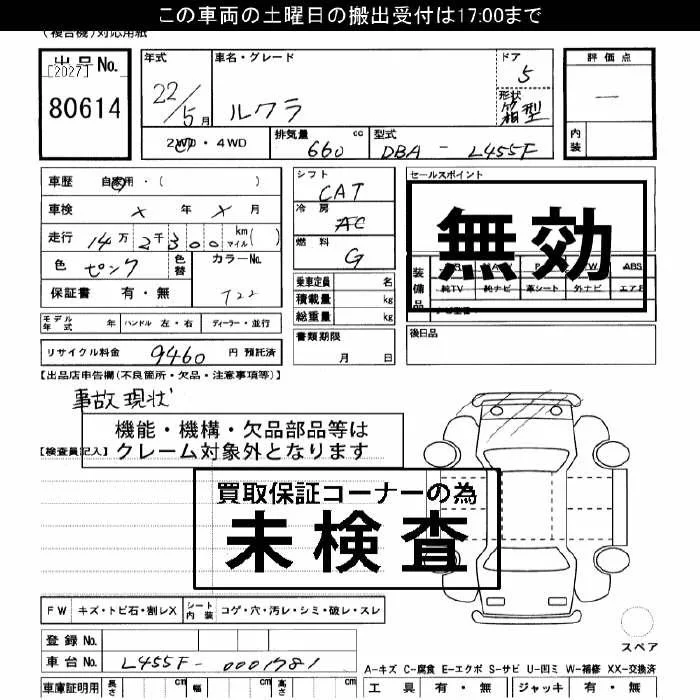 この車両の土曜日の搬出受付は17:00まで
(複合機)対応用紙
出品No.
[2027]
80614
年式
22/5月
車名・グレード
ルクラ
ドア
5
形状
箱型
評価点
—
内装
2WD・4WD
排気量 cc
660
型式
DBA - L455F
車歴 自家用・( )
車検 × 年 × 月
走行 14万2千300 km マイル( )
色 ピンク
色替
カラーNo.
T22
保証書 有・無
シフト
CAT
冷房
AC
燃料
G
乗車定員 名
積載量 kg
総重量 kg
書類期限
月 日
セールスポイント
無効
装備品
ABS
純TV 純ナビ 革シート 外ナビ エアB
後日品
モデル年式 年 ハンドル 左・右 ディーラー・並行
リサイクル料金 9460 円 預託済
【出品店申告欄(不良箇所・欠品・注意事項等)】
事故現状
機能・機構・欠品部品等は
クレーム対象外となります
【検査員記入】
買取保証コーナーの為
未検査
FW キズ・トビ石・割レX
シート内装 コゲ・穴・汚レ・シミ・破レ・スレ
登録No.
車台No. L455F-0001781
車庫証明用 長さ cm 幅 cm 高さ cm
スペア
A-キズ C-腐食 E-エクボ S-サビ U-凹ミ W-補修 XX-交換済
工具 有・無 ジャッキ 有・無